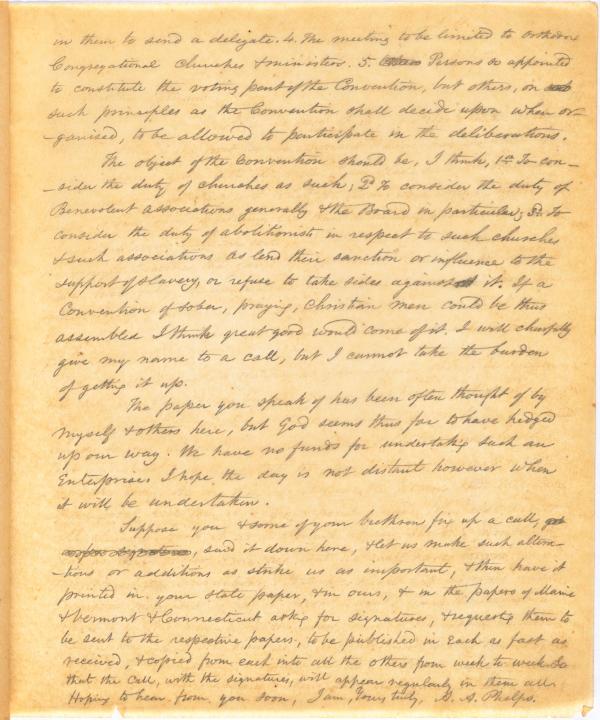 in them to send a delegate. 4. The meeting to be limited to Orthodox
Congregational Churches & ministers. 5. Persons so appointed
to constitute the voting part of the Convention, but others, on
such principles as the Convention shall decide upon when or-
-ganised, to be allowed to participate in the deliberations.
The object of the Convention should be, I think, 1st To con-
-sider the duty of churches as such, 2d To consider the duty of
Benevolent Associations generally & the Board in particular, 3d. To
consider the duty of abolitionists in respect to such churches
& such associations as lend their sanction or influence to the
support of slavery, or refuse to take sides against it. If a
Convention of sober, praying, Christian men could be thus
assembled I think great good would come of it. I will cheerfully
give my name to a call, but I cannot take the burden
of getting it up.
The paper you speak of has been often thought of by
myself & others here, but God seems thus far to have hedged
up our way. We have no funds for undertaking such an
Enterprise. I hope the day is not distant however when
it will be undertaken.
Suppose you & some of your brethren fix up a call,
send it down here, & let us make such altera-
-tions or additions as strike us as important, & then have it
printed in your state paper, & in ours, & in the papers of Maine
& Vermont & Connecticut asking for signatures, & requesting them to
be sent to the respective papers, to be published in each as fast as
received, & copied from each into all the others from week to week So
that the Call, with the signatures, will appear regularly in them all.
Hoping to hear from you soon, I am, Yours truly, A. A. Phelps.